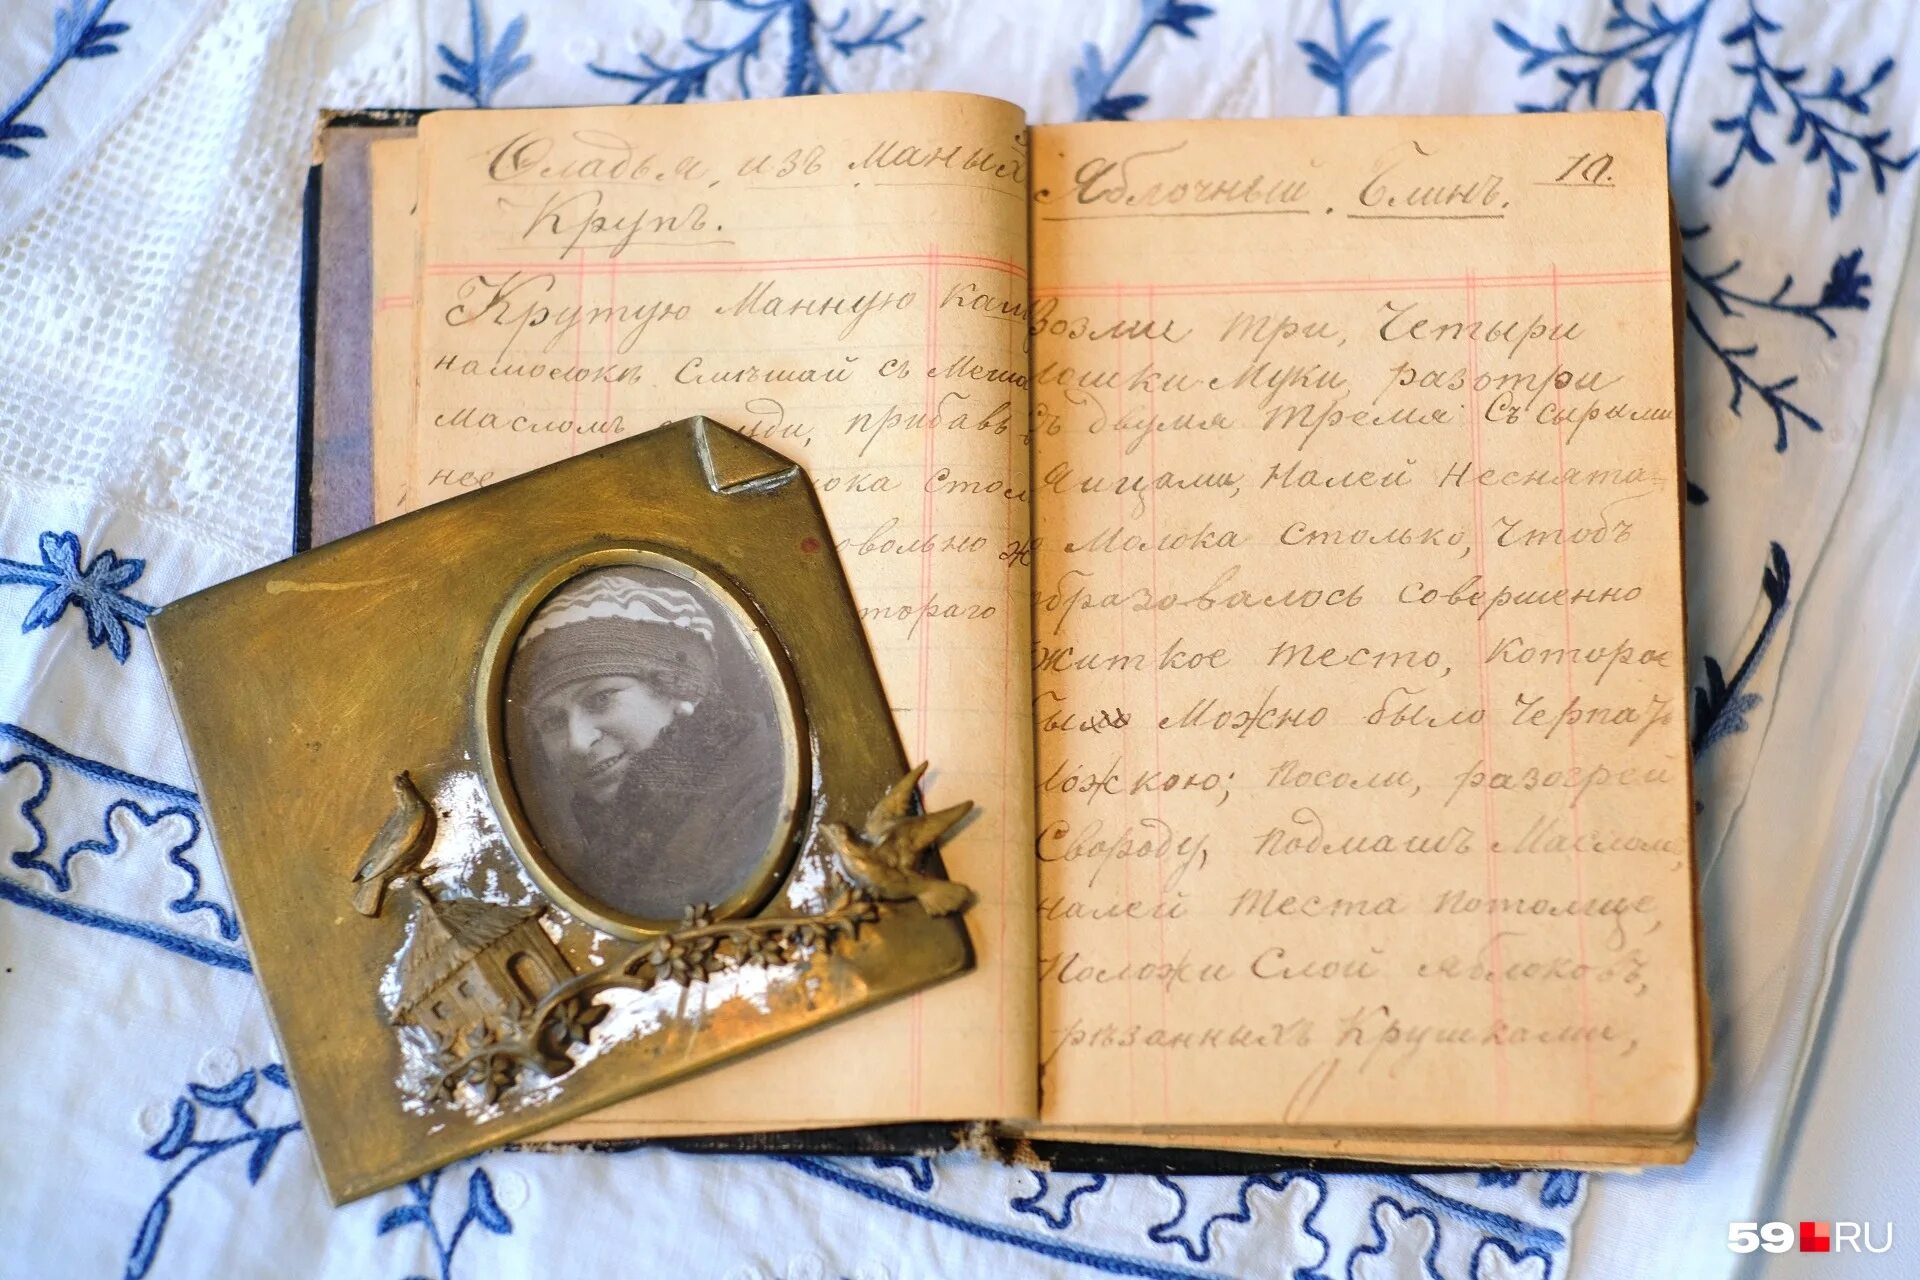 Оладья, изъ маныхъ
Крупъ.
Крутую Манную каш
намолокѣ Смѣшай съ
Масломъ прибавь
нее ока стол
овольно ж
тораго
Яблочный. Блинъ. 10.
Возми три, Четыри
ложки Муки, разотри
съ двумя тремя съ сырыми
Яицами, Налей Неснята-
го Молока столько, Чтобъ
образовалось совершенно
Житкое тесто, которое
бы Можно было Черпать
ложкою; посоли, разогрей
Свороду, подмашъ Маслом,
налей теста потолще,
Положи Слой яблоковъ,
рѣзанныхъ Кружками,
59.RU